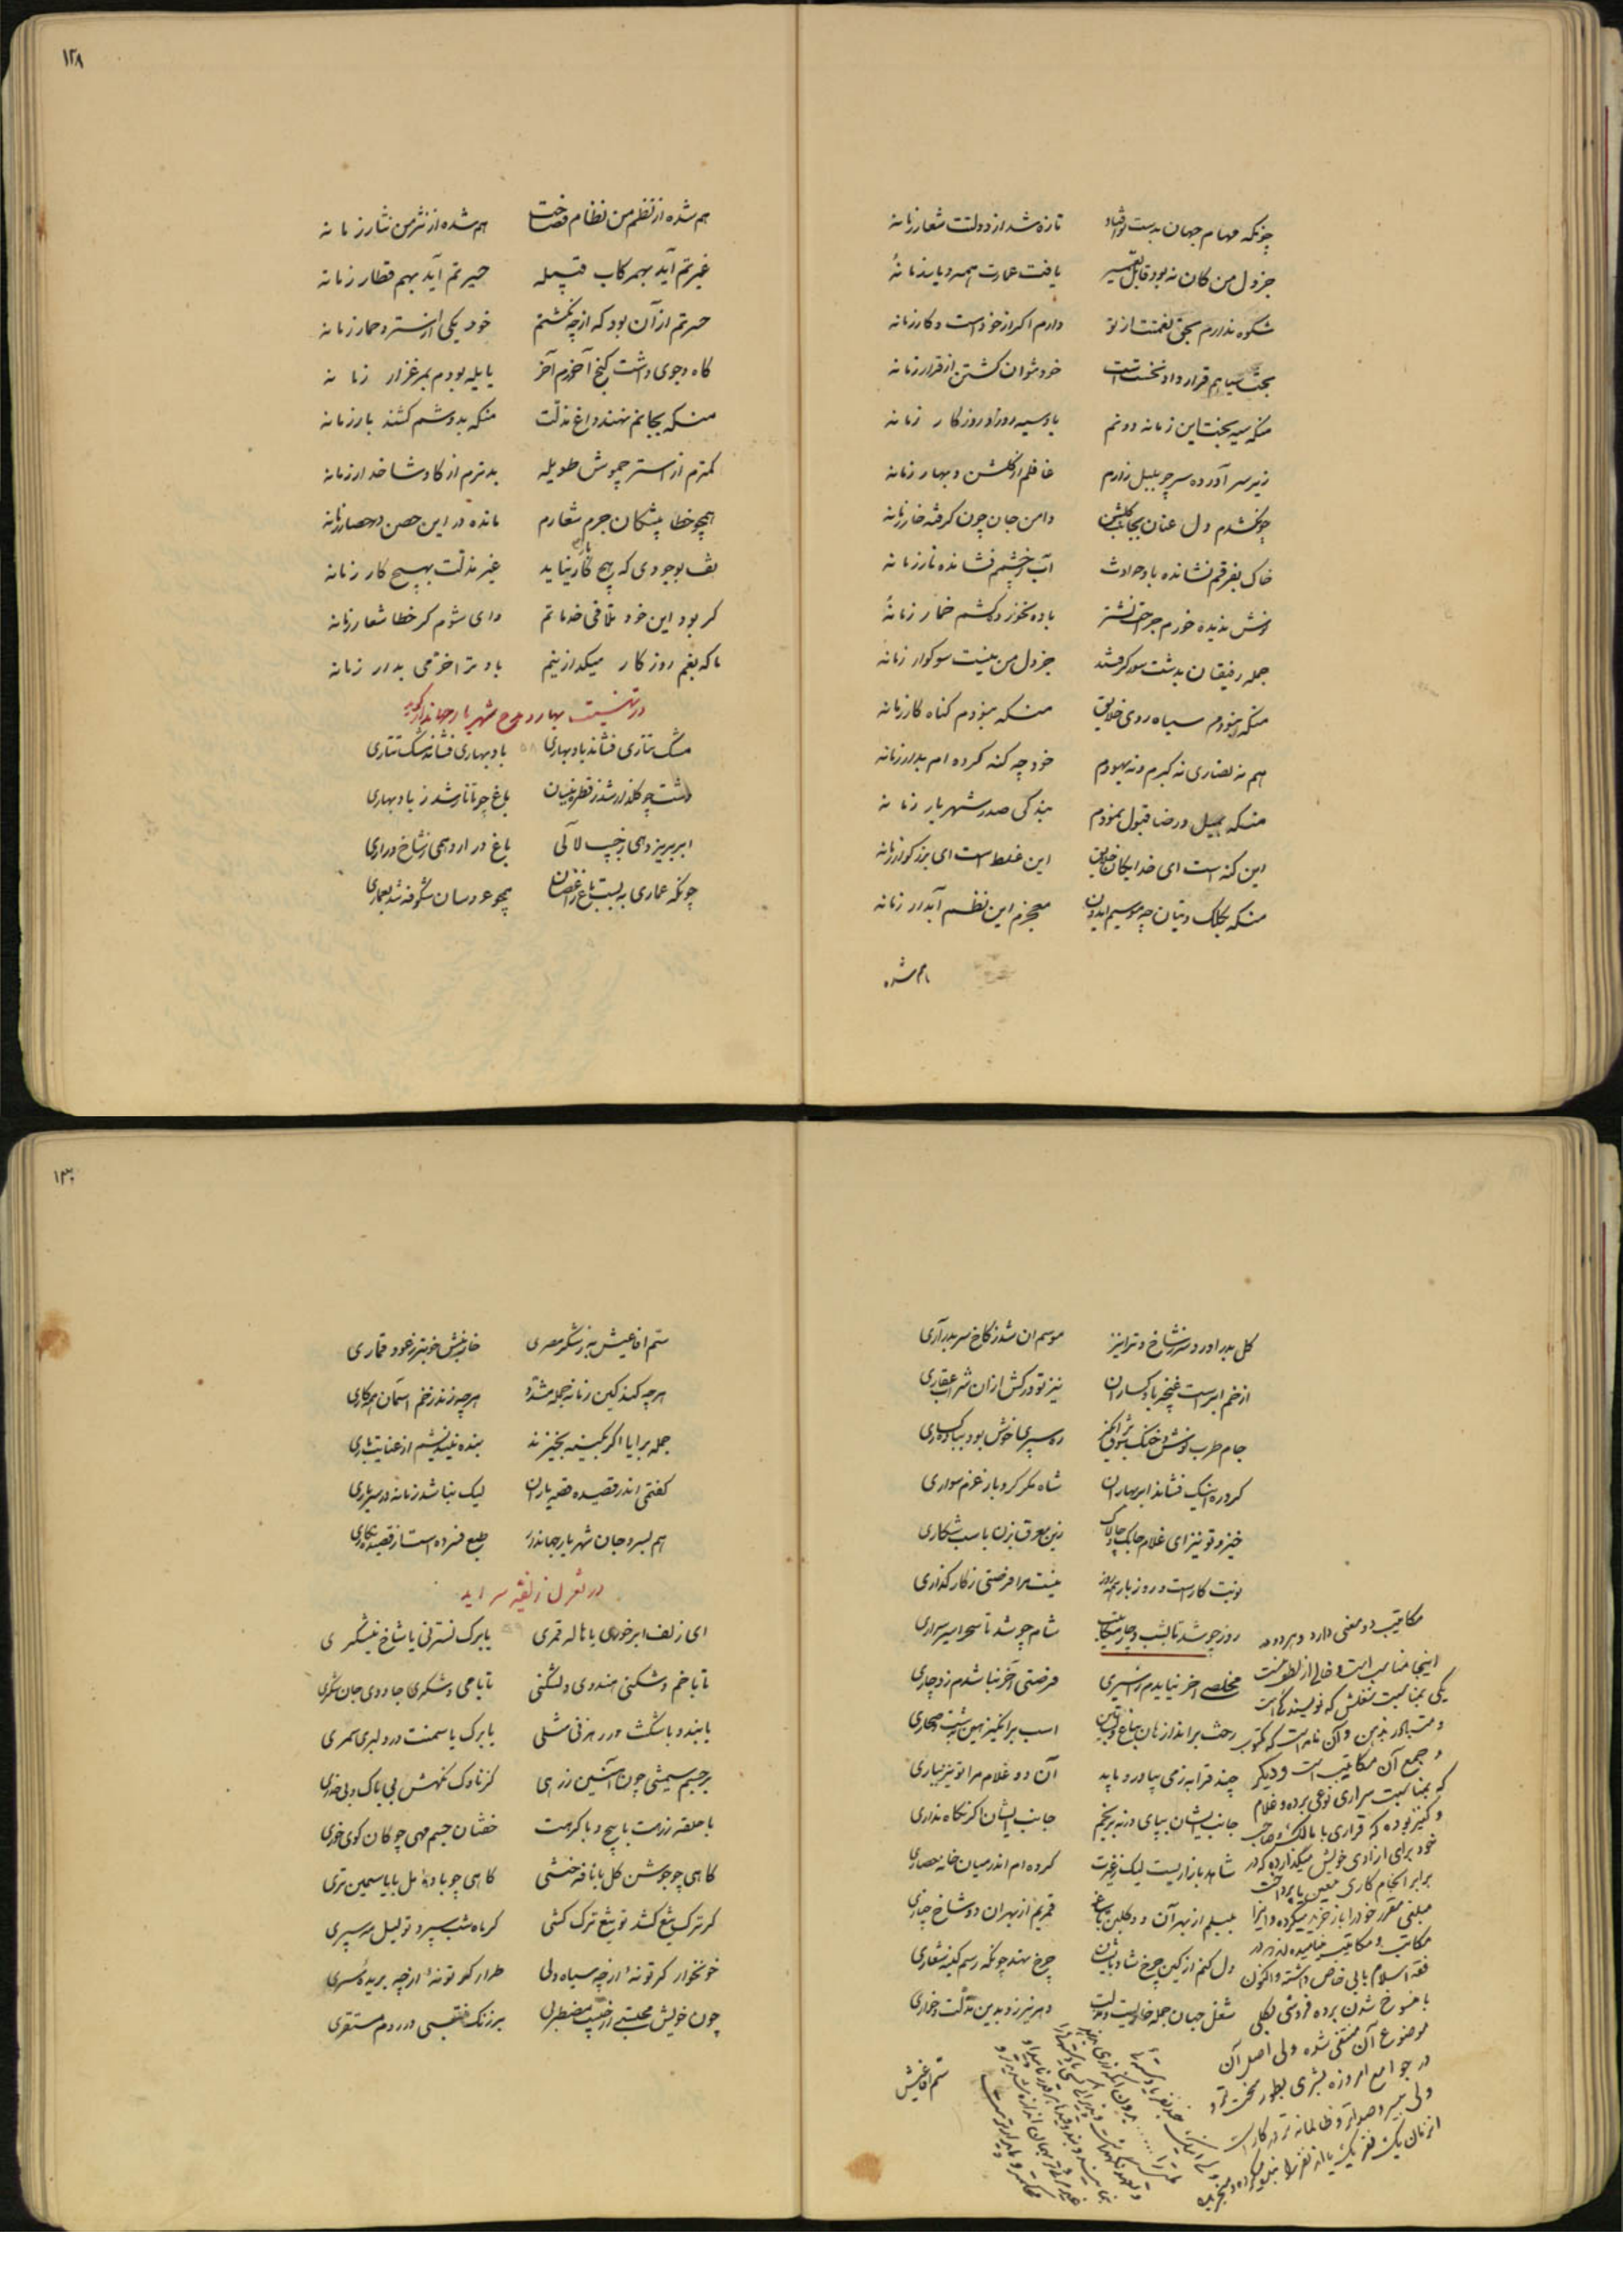 چونکه مهام جهان بدست تو افتاد تازه شد از دولتت شعار زمانه
جز دل من کان نه بود قابل تعمیر یافت عمارت همه دیار زمانه
شکوه ندارم بحق نعمتت از تو دارم اگر از خود است و کار زمانه
بخت سیاهم قرار داد نخست است خود نتوان گشتن از قرار زمانه
منکه سیه بختاین زمانه دونم باد سیه روز و روزکار زمانه
زیر سر آورده سر چو بلبل زارم غافلم از گلشن و بهار زمانه
چونکشدم دل عنان بجانب گلشن دامن جان چون گرفته خار زمانه
خاک بفرقم نشانده باد حوادث آب ز چشمم فشانده نار زمانه
نوش ندیده خورم جراحت نشتر باده نخورده کشم خمار زمانه
جمله رفیقان بدشت سور گرفتند جز دل من نیست سوکوار زمانه
منکه نبودم سیاه روی خلایق منکه نبودم گناه کار زمانه
هم نه نصاری نه گبرم و نه یهودم خود چه گنه کرده ام بدار زمانه
منکه بمیل و رضا قبول نمودم بندگی صدر شهریار زمانه
این گنه است ای خدایگان خلایق این غلط است ای بزرکوار زمانه
منکه بکلک و بنان چه موسیم ایدون معجزم این نظم آبدار زمانه
هم شده
١٢٨
هم شده از نظم من نظام فصاحت هم شده از نثر من نثار زمانه
غیرتم آید بهمرکاب قبیله حیرتم آید بهم قطار زمانه
حسرتم از آن بود که از چه نگشتم خود یکی از استر و حمار زمانه
کاه و جوی داشت کنج آخورم آخر یا یله بودم بمرغزار زمانه
منکه بجانم نهند داغ مذلت منکه بدوشم کشند بار زمانه
کمترم از استر چموش طویله بدترم از گاو شاخدار زمانه
همچو خطا پیشکان جرم شعارم مانده در این حصن و حصار زمانه
تف بوجودی که هیچ کار نیاید غیر مذلت بهیچ کار زمانه
گر بود این خود تلافی خدماتم وای شوم گر خطا شعار زمانه
ما که بغم روزکار میکدرانیم باد ترا خرمی بدار زمانه
در تهنیت بهار و مدح شهریار جهاندار گوید
مشک تتاری فشاند باد بهاری ٥٨ باد بهاری فشاند مشک تتاری
دشت چو گلزار شد ز قطره نیسان باغ چو تاتار شد ز باد بهاری
ابر بریزد همی ز جیب لآلی باغ در آرد همی ز شاخ دراری
چونکه عماری به بست باغ ز اغصان همچو عروسان شکوفه شد بعماری
گل بدر اورد سر ز شاخ و تو نیز موسم ان شد ز کاخ سر بدر آری
از خم ابر است غنچه باده کساران نیز تو درکش ازان شراب عقاری
جام طرب نوش و خنک شوق برانگیز ره سپری خوش بود بباده کساری
گرد ره اشک فشاند ابر بهاران شاه مگر کرد باز عزم سواری
خیز و تو نیز ای غلام چابک چالاک زین مغرق بزن باسب شکاری
نوبت کار است و روز بار همه روز نیست مرا فرصتی ز کار گذاری
روز چو شد تا بشب دچار مکاتیب شام چو شد تا سحر اسیر سراری
مخلصی اخر نیایدم ز اسیری فرصتی آخر نباشدم ز دچاری
رخت براندازمان بباغ و بساتین اسب برانگیزمان بدشت و صحاری
چند قرابه ز می بیاور و باید آن دو غلام مرا تو نیز بیاری
جانب ایشان بپای در نه زنجیر جانب ایشان اگر نگاه نداری
شاهد بازاریست لیک ز غیرت کرده ام اندر میان خانه حصاری
بلبلم از بهر آن دو گلبن باغ قمریم از بهر ان دو شاخ چناری
دل کنم از کین چرخ شاد بایشان چرخ نهد چونکه رسم کینه شعاری
شغل جهان جمله خواریست و مذلت دهر نیرزد بدین مذلت و خواری
ستم افاعیش
مکاتیب دو معنی دارد و هر دو در
اینجا مناسب است و خالی از لطف نیست
یکی بمناسبت شغلش که نویسندگی است
و متبادر بذهن و آن نامه است که مکتوب
و جمع آن مکاتیب است و دیگر
که بمناسبت سراری نوعی برده و غلام
و کنیز بوده که قراری با مالک و صاحب
خود برای ازادی خویش میگذارده که در
برابر انجام کاری معین یا پرداخت
مبلغی مقرر خود را باز خرید میکرده و انرا
مکاتب و مکاتیب مینامیده اند و در
فقه اسلام بابی خاص داشته و اکنون
با منسوخ شدن برده فروشی بکلی
موضوع آن منتفی شده ولی اصل آن
در جوامع امروزه بشری بطور سخت تر
ولی بیسر و صداتر و ظالمانه تر در کار است
انزمان یک نفر یک یا ده نفر را
١٣٠
ستم افاعیش به ز شکر مصری خار بنش خوبتر ز عود قماری
هر چه کند کین زمانه جمله مشدد هر چه زند زخم اسمان همه کاری
جمله برایا اگر بکینه بخیزند بنده نیندیشم از عنایت باری
گفتمی اندر قصیده قصه یاران لیک نباشد زمانه در سر یاری
هم بسر و جان شهریار جهاندار طبع فسرده است از قصیده نگاری
در تغزل زلفیه سراید
ای زلف ابر خوری یا هاله قمری ٥٩ یا برک نسترنی یا شاخ نیشکری
تا با خم و شکنی هندوی دلشکنی تا با می و شکری جادوی جان شکری
یا بند و با شکنت در رهزنی مثلی یا برک یاسمنت در دلبری سمری
بر جسم سیمینی چون آتشین زرهی کز ناوک نگهش بی باک و بی حذری
با حلقه زرهت با پیچ و با گرهت خفتان جسم مهی چوگان گوی خوری
کاهی چو جوشن گل با نافه ختنی کاهی چو باده مل با یاسمین تری
گر ترک تیغ کشد تو تیغ ترک کشی گر ماه شب سپرد تو لیل مه سپری
خونخوار گر تو نه از چه سیاه دلی طرار گر تو نه از چه بریده سری
چون خویش محتبی از چیست مضطربی بر زنک منقسی در روم مستقری